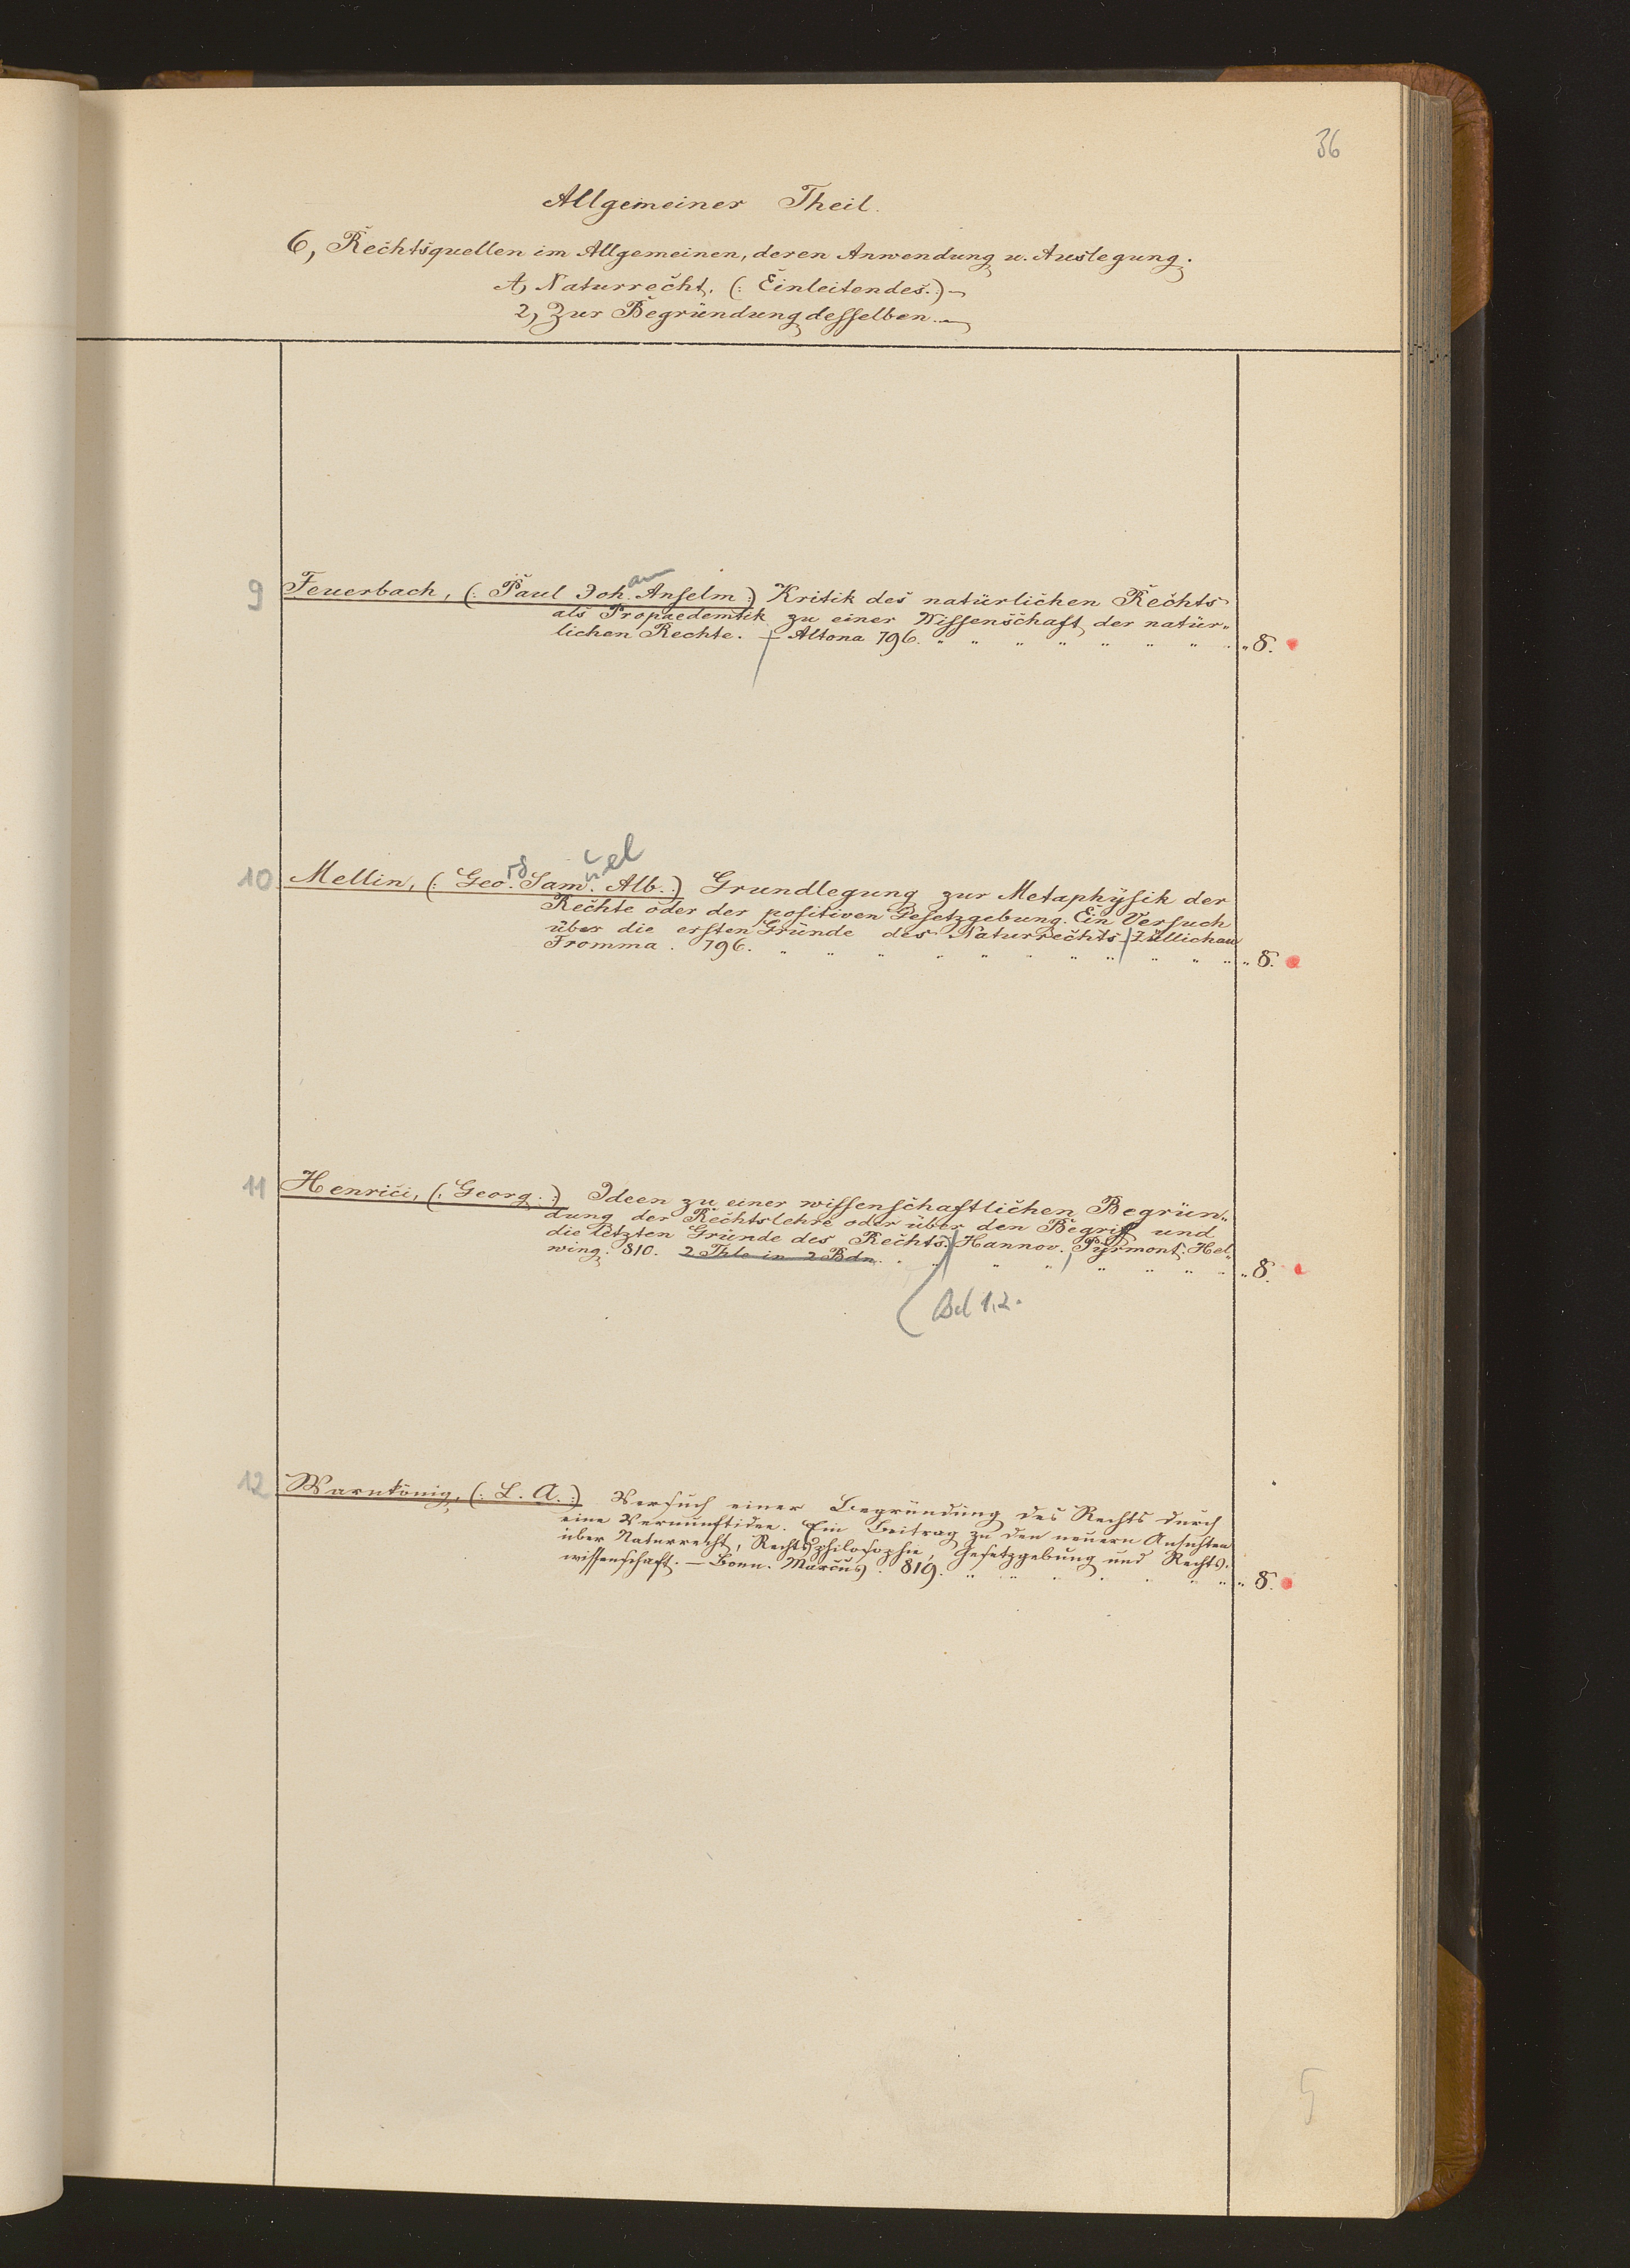 36
Allgemeiner Theil.
6, Rechtsquellen im Allgemeinen, deren Anwendung u. Auslegung.
A, Naturrecht. (: Einleitendes. :) —
2, Zur Begründung desselben. —
9 Feuerbach, (: Paul Joh.ann Anselm :) Kritik des natürlichen Rechts
als Propaedemtik zu einer Wissenschaft der natür-
lichen Rechte. — Altona 796. " " " " " " " " 8.
10 Mellin, (: Geo.rg Sam.uel Alb. :) Grundlegung zur Metaphÿsik der
Rechte oder der positiven Gesetzgebung. Ein Versuch
über die ersten Gründe des Naturrechts. / Züllichau
Fromma. 796. " " " " " " " " " " " 8.
11 Henrici, (: Georg. :) Ideen zu einer wissenschaftlichen Begrün-
dung der Rechtslehre oder über den Begriff und
die letzten Gründe des Rechts. / Hannov. Pÿrmont. Hel-
wing. 810. 2 Thle in 2 Bdn. " " " " " " " " 8.
Bd 1.2.
12 Warnkönig, (: L. A. :) Versuch einer Begründung des Rechts durch
eine Vernunftidee. Ein Beitrag zu den neuern Ansichten
über Naturrecht, Rechtsphilosophie, Gesetzgebung und Rechts-
wissenschaft. — Bonn. Marcus. 819. " " " " " " " " 8.
5